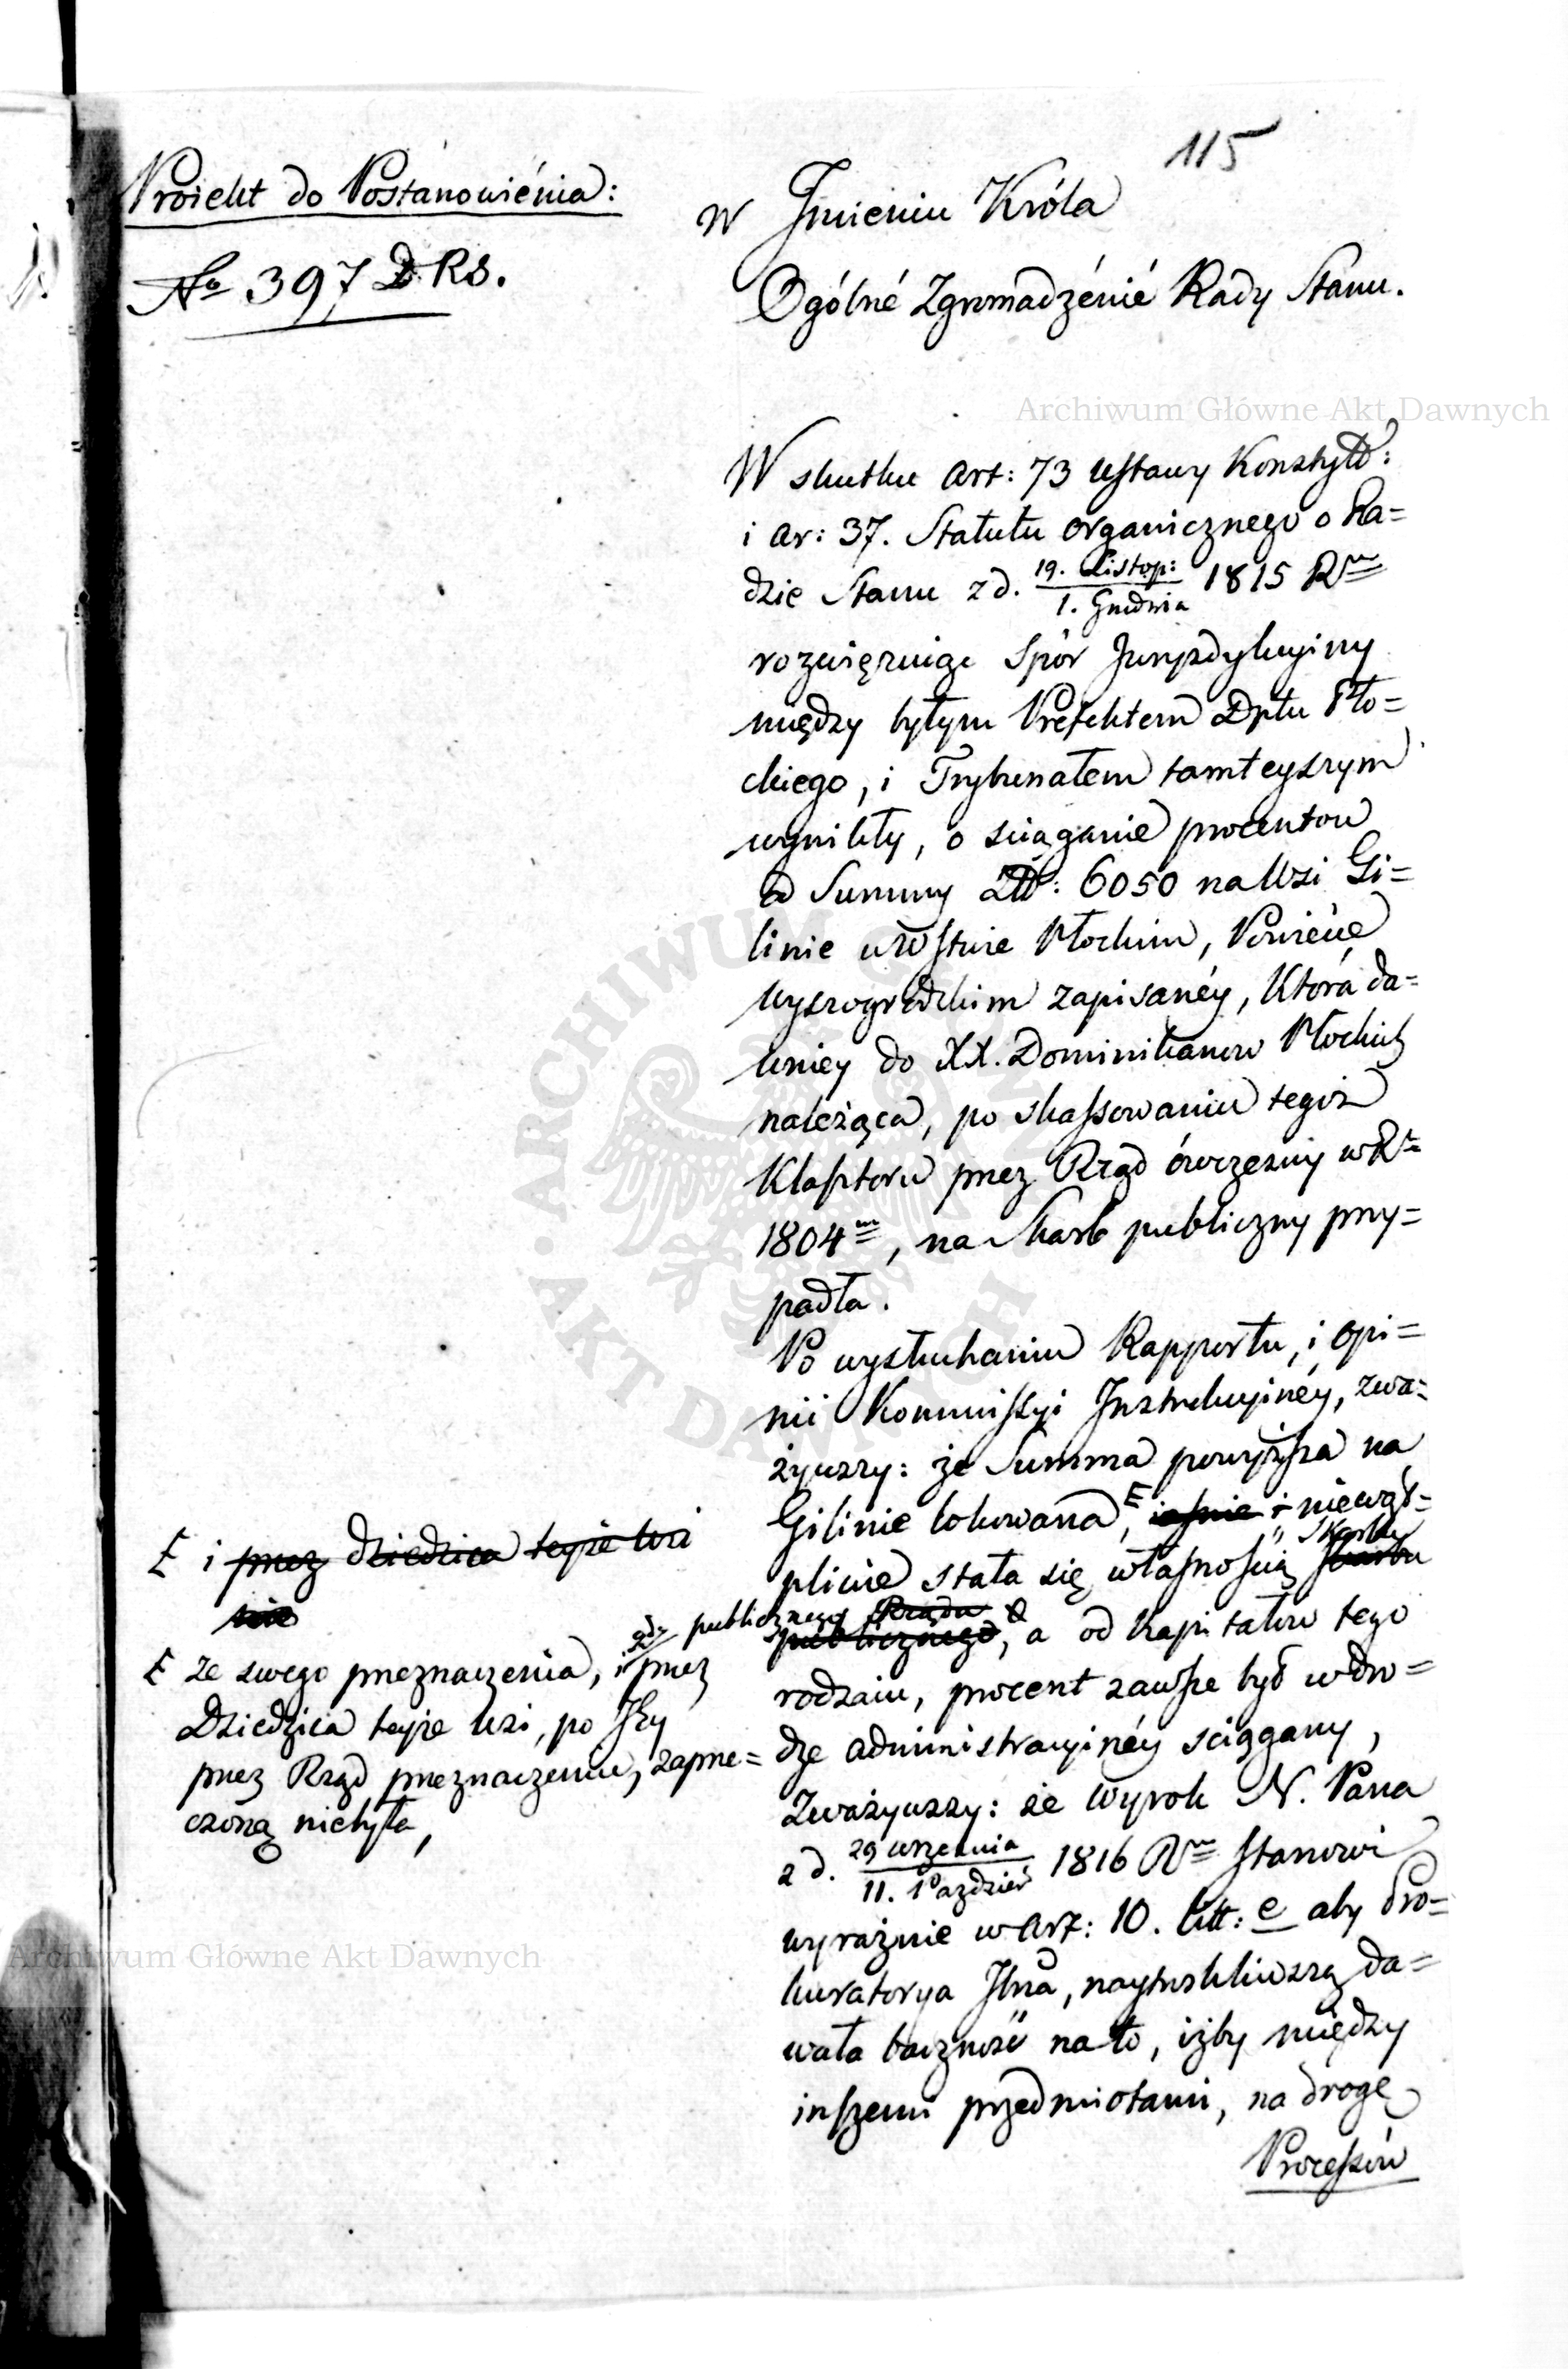 115
Proiekt do Postanowiénia:
No 397 D. RS.
W Imieniu Króla
Ogólné Zgromadzénié Rady Stanu.
Archiwum Główne Akt Dawnych
W skutku Art: 73 Ustawy Konstytt:
i Ar: 37. Statutu Organicznego o Ra=
dzie Stanu z d. 19. Listop: / 1. Grudnia 1815 Rm
rozwięzuiąc Spór Juryzdykcyiny
między byłym Prefektem Dptu Pło=
ckiego, i Trybunałem tamteyszym
wynikły, o sciąganie procentow
od Summy Złł: 6050 na Wsi Gi=
linie w Wstwie Płockim, Powiécie
Wyszogrodzkim zapisanéy, Która da=
wniey do XX. Dominikanow Płockich
należąca, po skassowaniu tegoż
Klasztoru przez Rząd ówczesny w Rn
1804m, na Skarb publiczny przy=
padła.
Po wysłuchaniu Rapportu, i opi=
nii Kommissyi Instrukcyinéy, zwa=
żywszy: że Summa powyższa na
Gilinie lokowana, iasnie i niewąt=
pliwie stała się własnoscią Skarbu Skarbu
publicznego Rządu
publicznego, a od Kapitałow tego
rodzaiu, procent zawsze był w dro=
dze administracyinéy sciągany,
Zważywszy: że Wyrok N. Pana
z d. 29 Września / 11. Pazdzier 1816 Rm stanowi
wyraźnie w Art: 10. litt: e aby Pro=
kuratorya Jlna, naytroskliwszą da=
wała baczność na to, iżby między
inszemi przedmiotami, na drogę
Processów
i przez dziedzica teyże Wsi
nie
ze swego przeznaczenia, i gdy przez
Dziedzica teyże Wsi, po Jey
przez Rząd przeznaczeniu, zaprze=
czoną niebyła,
Archiwum Główne Akt Dawnych
ARCHIWUM GŁÓWNE AKT DAWNYCH